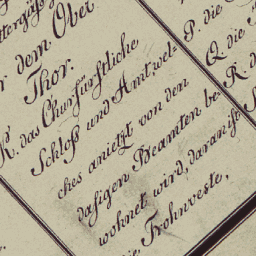 dem Ober
Thor.
K. das Churfürstliche
Schloß und Amt, wel-
ches anietzt von dem
dasigen Beamten be-
wohnet wird, daran ist
die, Frohnveste,
P. die
Q. die
R.